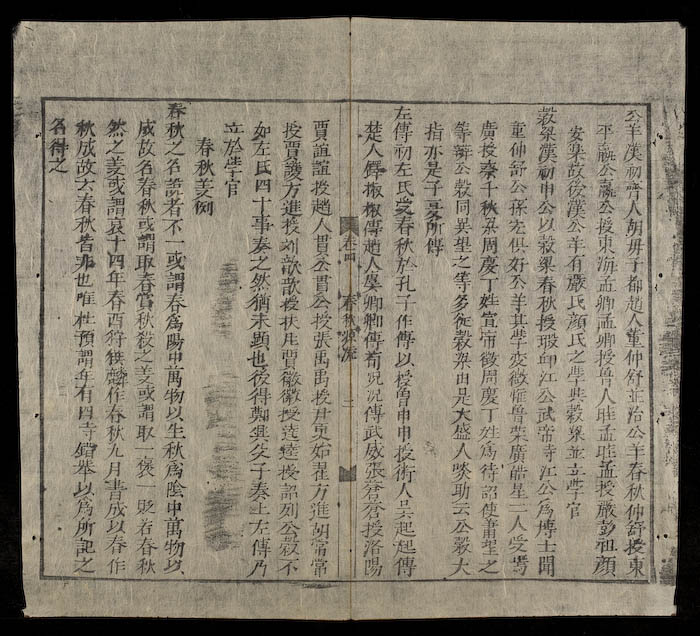 公羊漢初齊人胡毋子都趙人董仲舒並治公羊春秋仲舒授東
平嬴公嬴公授東海孟卿孟卿授魯人眭孟眭孟授嚴彭祖顔
安樂故後漢公羊有嚴氏顔氏之學與穀梁並立學官
穀梁漢初申公以穀梁春秋授瑕丘江公武帝時江公為博士聞
重仲舒公孫弘俱好公羊其學㣲惟魯榮廣皓星二人受焉
廣授秦千秋及周慶丁姓宣帝徵周慶丁姓為待詔使蕭望之
等辨公穀同異望之等多從穀梁由是大盛人啖助云公穀大
指亦是子夏所傳
左傳初左氏受春秋於孔子作傳以授魯申申授衛人吳起起傳
楚人鐸椒椒傳趙人虞卿卿傳荀况况傳武威張蒼蒼授洛陽
卷四 春秋源流 二
賈誼誼授趙人貫公貫公授張禹禹授尹更始翟方進胡常常
授賈護方進授刘歆歆授扶風賈徽徽授逵逵授詔列公穀不
如左氏四十事奏之然猶未顯也後得鄭興父子奏上左傳乃
立於學官
春秋義例
春秋之名說者不一或謂春為陽中萬物以生秋為陰中萬物以
成故名春秋或謂取春賞秋殺之義或謂取一褒一貶若春秋
然之義或謂哀十四年春西狩獲麟作春秋九月書成以春作
秋成故云春秋皆非也唯杜預謂年有四时錯舉以為所記之
名得之